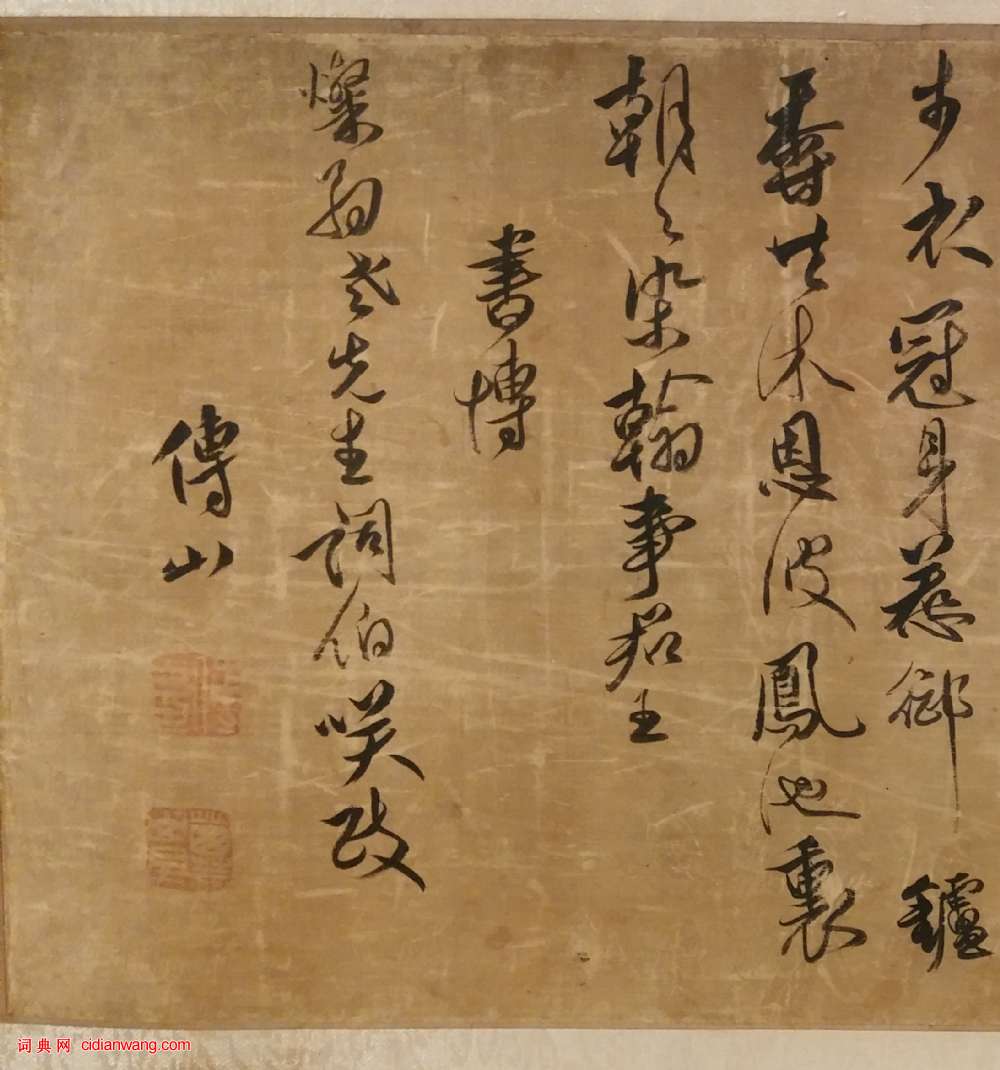 步衣冠身惹御鑪
香共沐恩波鳳池裏
朝〻染翰事君王
書博
燦老先生詞伯咲政
傅山
词典网 cidianwang.com